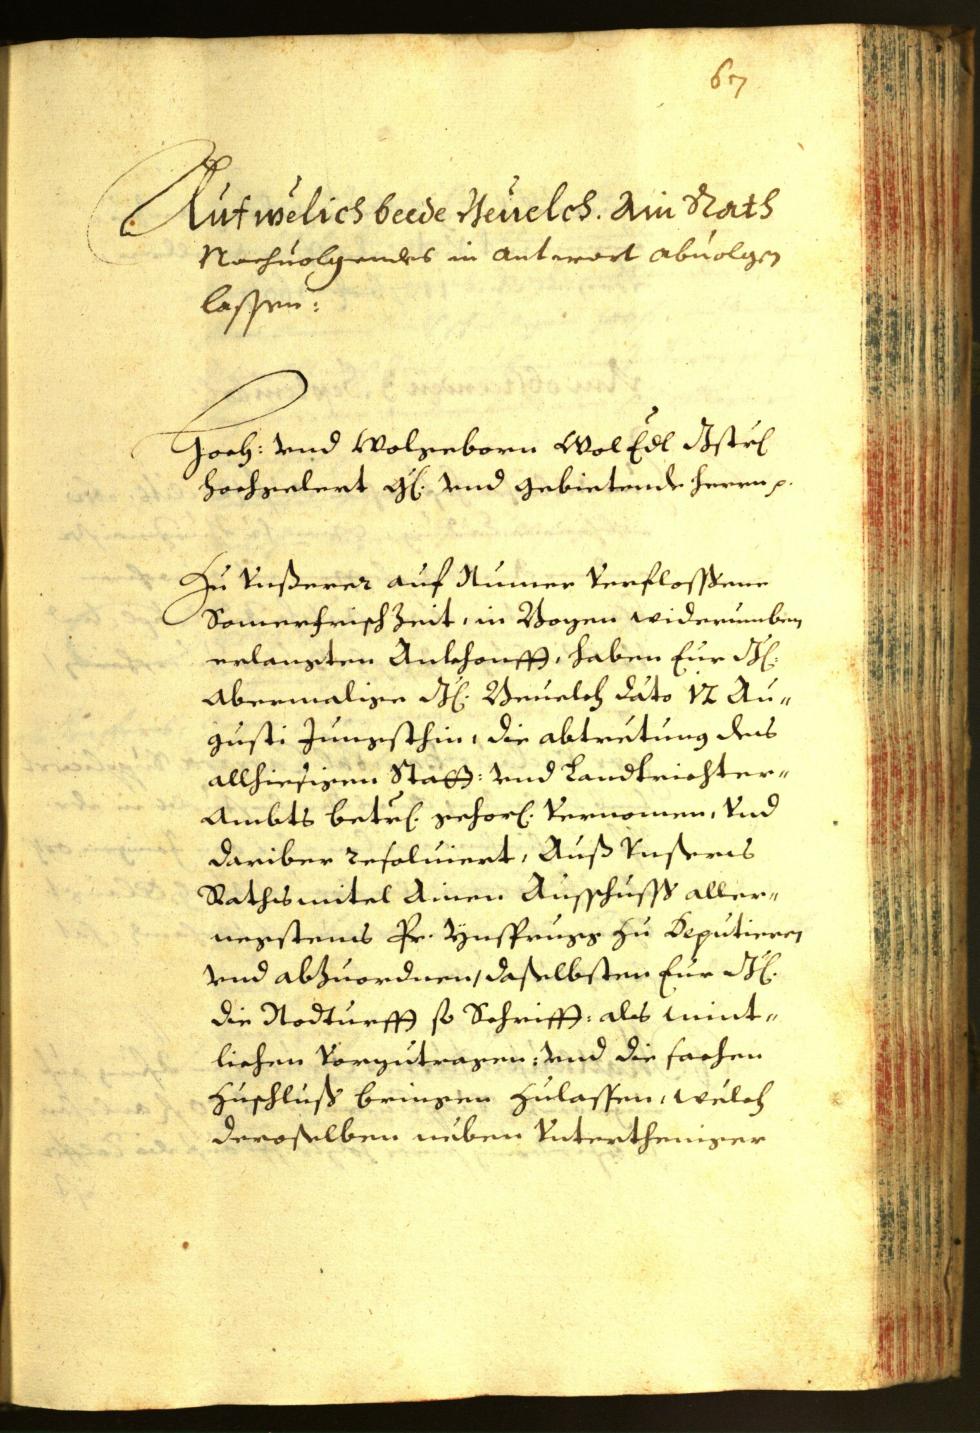 67
Auf wëlich beede Beuelch. Ain Rath
Nachuolgendes in Antwort abuolgen
lassen:
Hoch: vnd Wolgeborn Wol Edl Gstr:
hochgelert G: vnd gebietende herrn p.
Zu Vnßerer auf Numer Verflossene
Somerfrisch Zeit, in Bozen widerumben
erlangten Ankhonfft, haben Eur G:
Abermalige G: Beuelch dato 12 Au„
gusti Jungsthin, die abtretung des
allhiesigen Statt: vnd Landtrichter„
Ambts betr: gehors: Vernomen, Vnd
dariber resoluiert, Auß Vnßers
Rathsmitel Ainen Ausschuss aller„
negstens Pr. Ynsprugg zu Deputieren
vnd abzuordnen, daselbsten Eur G:
die Nodturfft so Schrifft: als mint„
lichen Vorzutragen: vnd die sachen
zuschluß bringen zulassen, wëlch
deroselben neben Vntertheniger